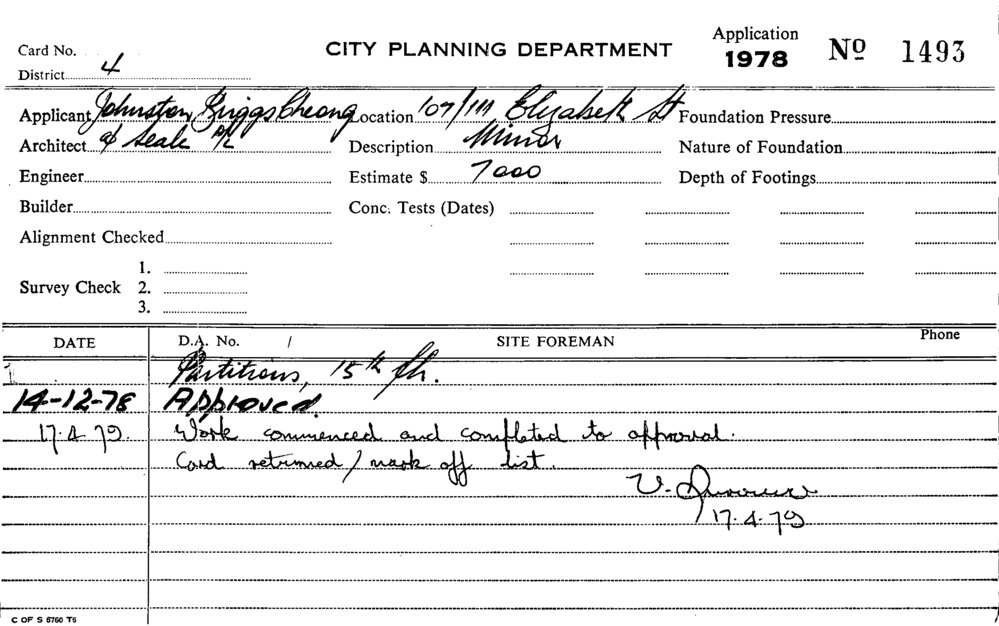 Card No.
District 4
CITY PLANNING DEPARTMENT
Application
1978
No 1493
Applicant Johnston, Briggs Cheong
Architect & Seale P/L
Engineer
Builder
Alignment Checked
Survey Check 1.
2.
3.
Location 107/111 Elizabeth St
Description Minor
Estimate $ 7000
Conc. Tests (Dates)
Foundation Pressure
Nature of Foundation
Depth of Footings
DATE D.A. No. / SITE FOREMAN Phone
Partitions, 15th flr.
14-12-78 Approved.
17.4.79. Work commenced and completed to approval.
Card returned / mark off list.
V.
17.4.79
C OF S 6760 T6